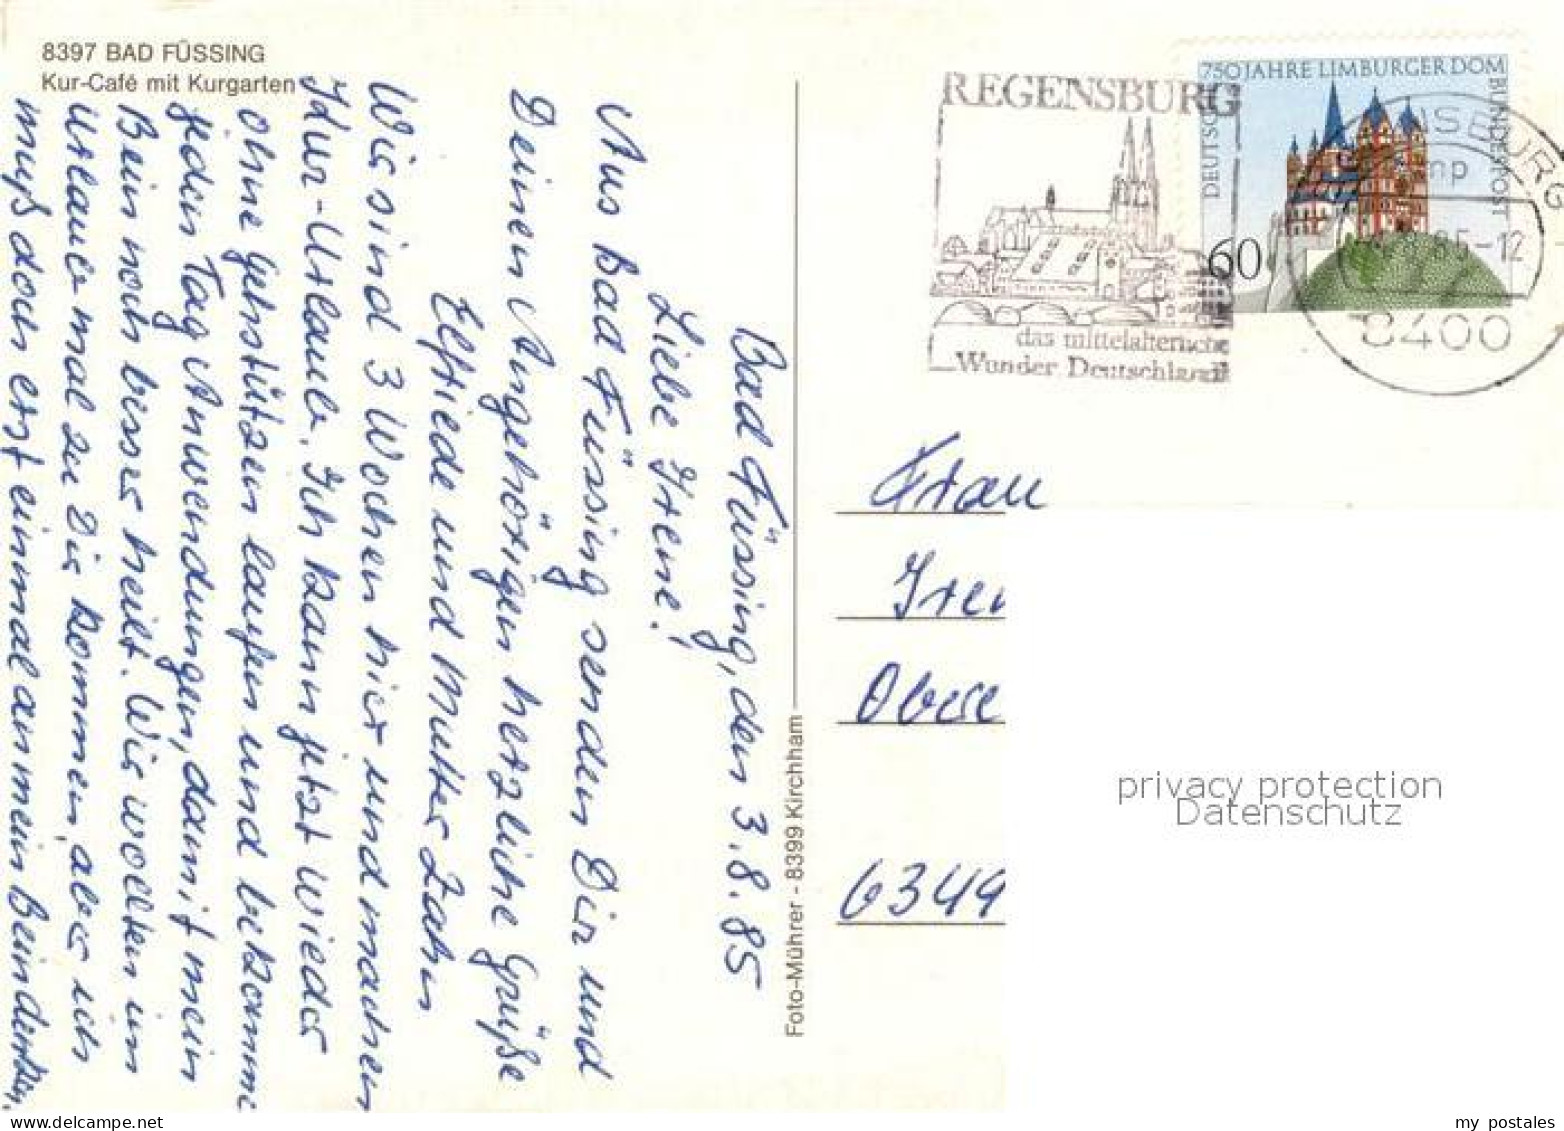 8397 BAD FÜSSING
Kur-Café mit Kurgarten
Bad Füssing, den 3.8.85
Liebe Irene!
Aus Bad Füssing senden Dir und
Deinen Angehörigen herzliche Grüße
Elfriede und Mutter Zahn
Wir sind 3 Wochen hier und machen
Kur-Urlaub. Ich kann jetzt wieder
ohne Gehstützen laufen und bekomme
jeden Tag Anwendungen, damit mein
Bein noch besser heilt. Wir wollten im
Urlaub mal zu Dir kommen, aber ich
muß doch erst einmal an mein Bein denken.
Foto-Mührer - 8399 Kirchham
REGENSBURG
das mittelalterliche
Wunder Deutschlands
750 JAHRE LIMBURGER DOM
DEUTSCHE
BUNDESPOST
60
85-12
8400
Frau
Iren
Obere
6349
privacy protection
Datenschutz
www.delcampe.net
my_postales